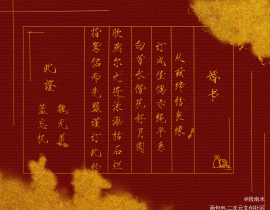 婚书
从兹缔结良缘
订成佳偶赤绳早系
白首永偕花好月圆
欣燕尔之将泳海枯石烂
指鸳侣而先盟谨订此约
此證
魏无羡
蓝忘机
@段南水
画包包 二次元文创社区